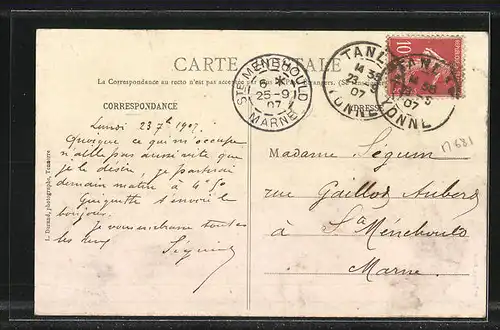 CARTE POSTALE
La Correspondance au recto n'est pas acceptée
CORRESPONDANCE
ADRESSE
STE MENEHOULD
6 *
25-9
07
MARNE
TANLAY
M 35
23 -9
07
YONNE
TANLAY
M 35
07
YONNE
10
Lundi 23 7b 1907.
Quoique ce qui m'occupe
n'aille pas aussi vite que
je le désire, je partirai
demain matin à
Guiguitte
bonjour.
Je vous embrasse toutes
les
Séguin
Madame Séguin
rue Gaillot Aubert
à Ste Ménehould
Marne.
L. Durand, photographe, Tonnerre